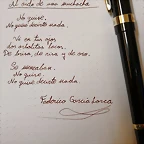 Al oído de una muchacha
No quise.
No quise decirte nada.
Vi en tus ojos
dos arbolitos locos.
De brisa, de risa y de oro.
Se meneaban.
No quise.
No quise decirte nada.
Federico García Lorca